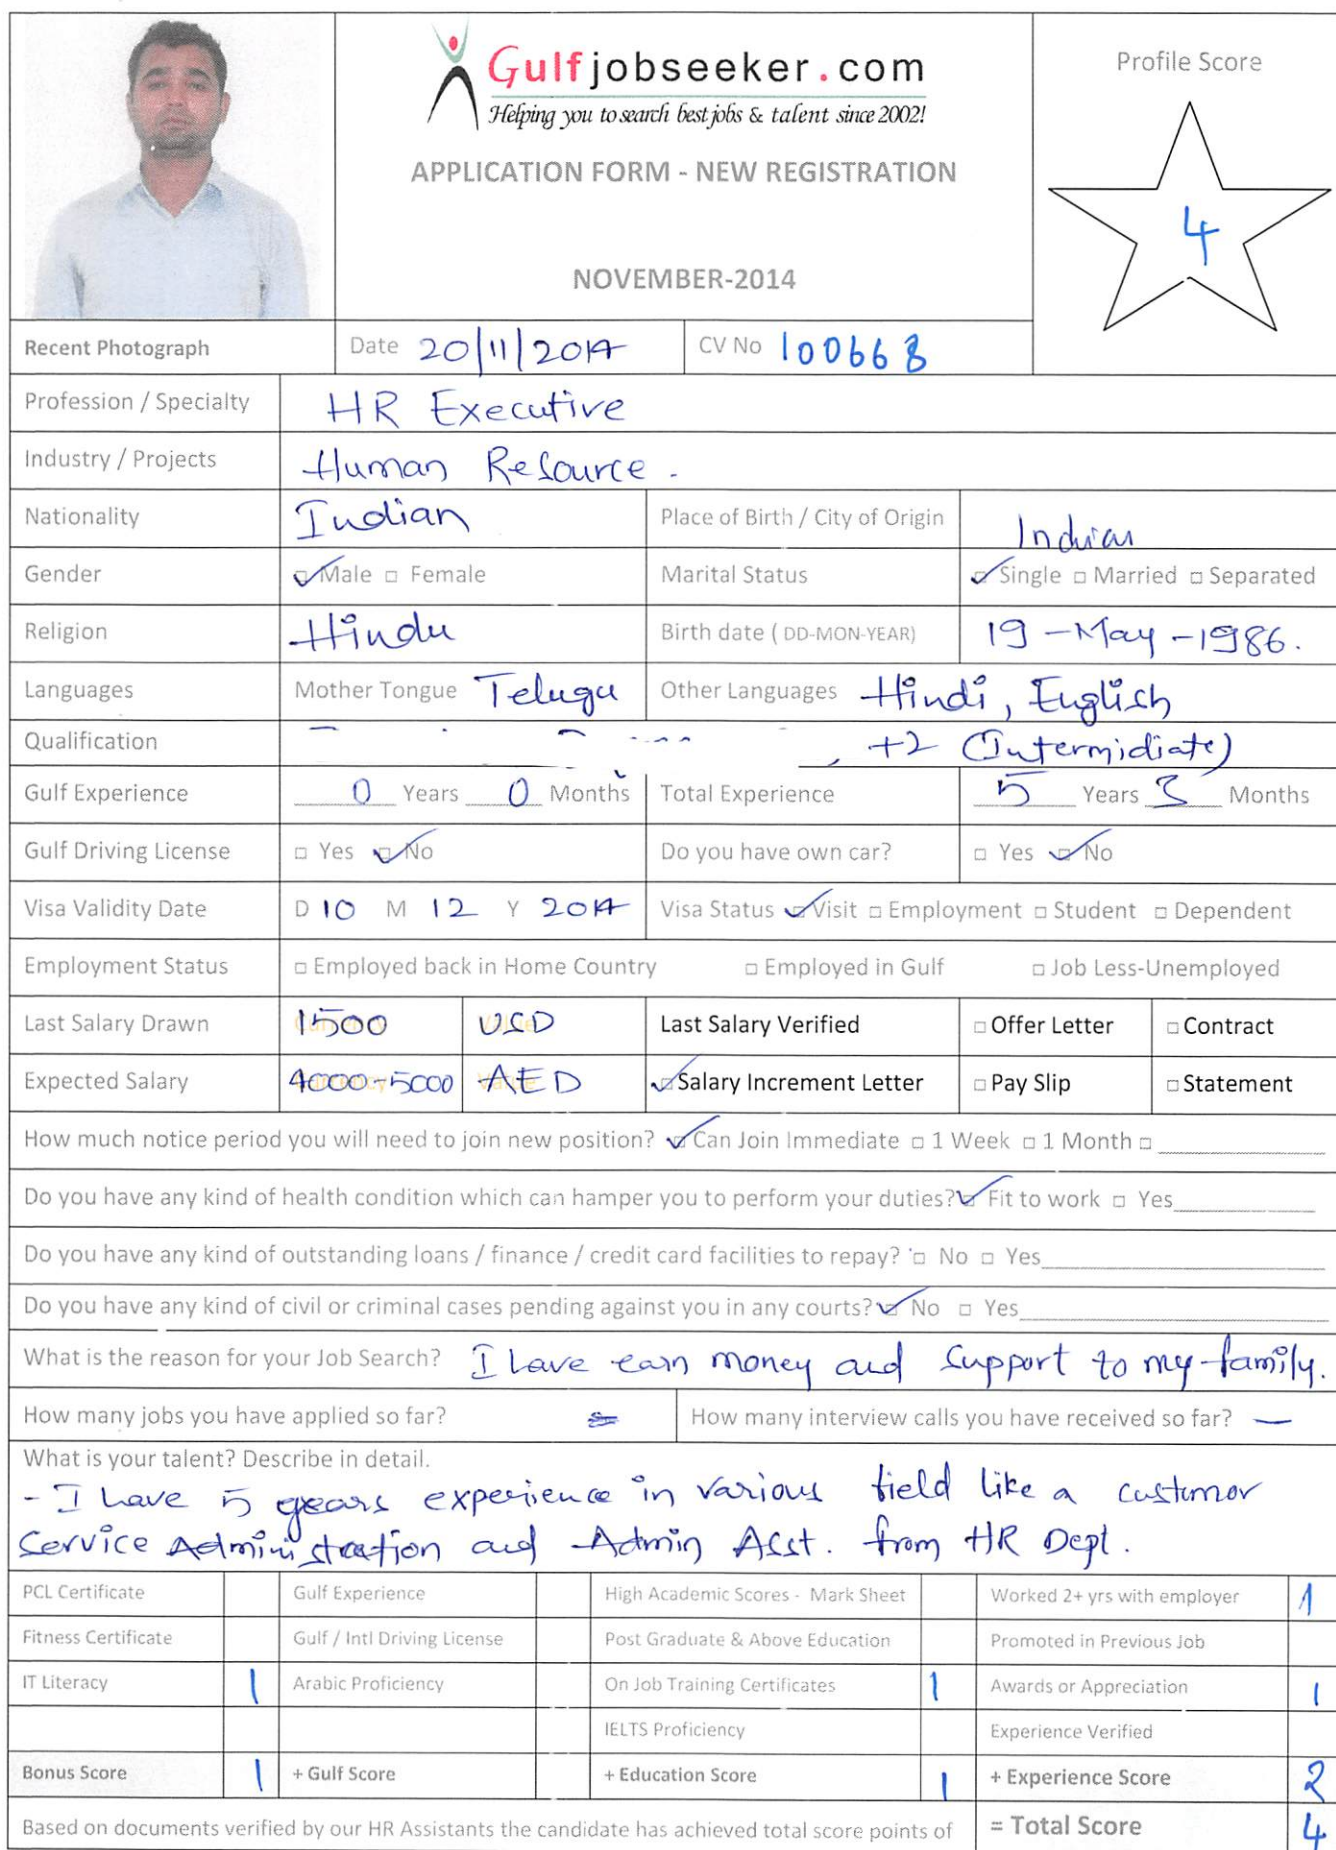 Gulfjobseeker.com
Helping you to search best jobs & talent since 2002!
APPLICATION FORM - NEW REGISTRATION
NOVEMBER-2014
Profile Score
4
Recent Photograph Date 20/11/2014 CV No 100668
Profession / Specialty HR Executive
Industry / Projects Human Resource.
Nationality Indian Place of Birth / City of Origin Indian
Gender Male Female Marital Status Single Married Separated
Religion Hindu Birth date ( DD-MON-YEAR) 19-May-1986.
Languages Mother Tongue Telugu Other Languages Hindi, English
Qualification , +2 (Intermidiate)
Gulf Experience 0 Years 0 Months Total Experience 5 Years 3 Months
Gulf Driving License Yes No Do you have own car? Yes No
Visa Validity Date D 10 M 12 Y 2014 Visa Status Visit Employment Student Dependent
Employment Status Employed back in Home Country Employed in Gulf Job Less-Unemployed
Last Salary Drawn 1500 USD Last Salary Verified Offer Letter Contract
Expected Salary 4000-5000 AED Salary Increment Letter Pay Slip Statement
How much notice period you will need to join new position? Can Join Immediate 1 Week 1 Month
Do you have any kind of health condition which can hamper you to perform your duties? Fit to work Yes
Do you have any kind of outstanding loans / finance / credit card facilities to repay? No Yes
Do you have any kind of civil or criminal cases pending against you in any courts? No Yes
What is the reason for your Job Search? I have earn money and support to my family.
How many jobs you have applied so far? How many interview calls you have received so far? —
What is your talent? Describe in detail.
- I have 5 years experience in various field like a customor
Service Administration and Admin Asst. from HR Dept.
PCL Certificate Gulf Experience High Academic Scores - Mark Sheet Worked 2+ yrs with employer 1
Fitness Certificate Gulf / Intl Driving License Post Graduate & Above Education Promoted in Previous Job
IT Literacy 1 Arabic Proficiency On Job Training Certificates 1 Awards or Appreciation 1
IELTS Proficiency Experience Verified
Bonus Score 1 + Gulf Score + Education Score 1 + Experience Score 2
Based on documents verified by our HR Assistants the candidate has achieved total score points of = Total Score 4